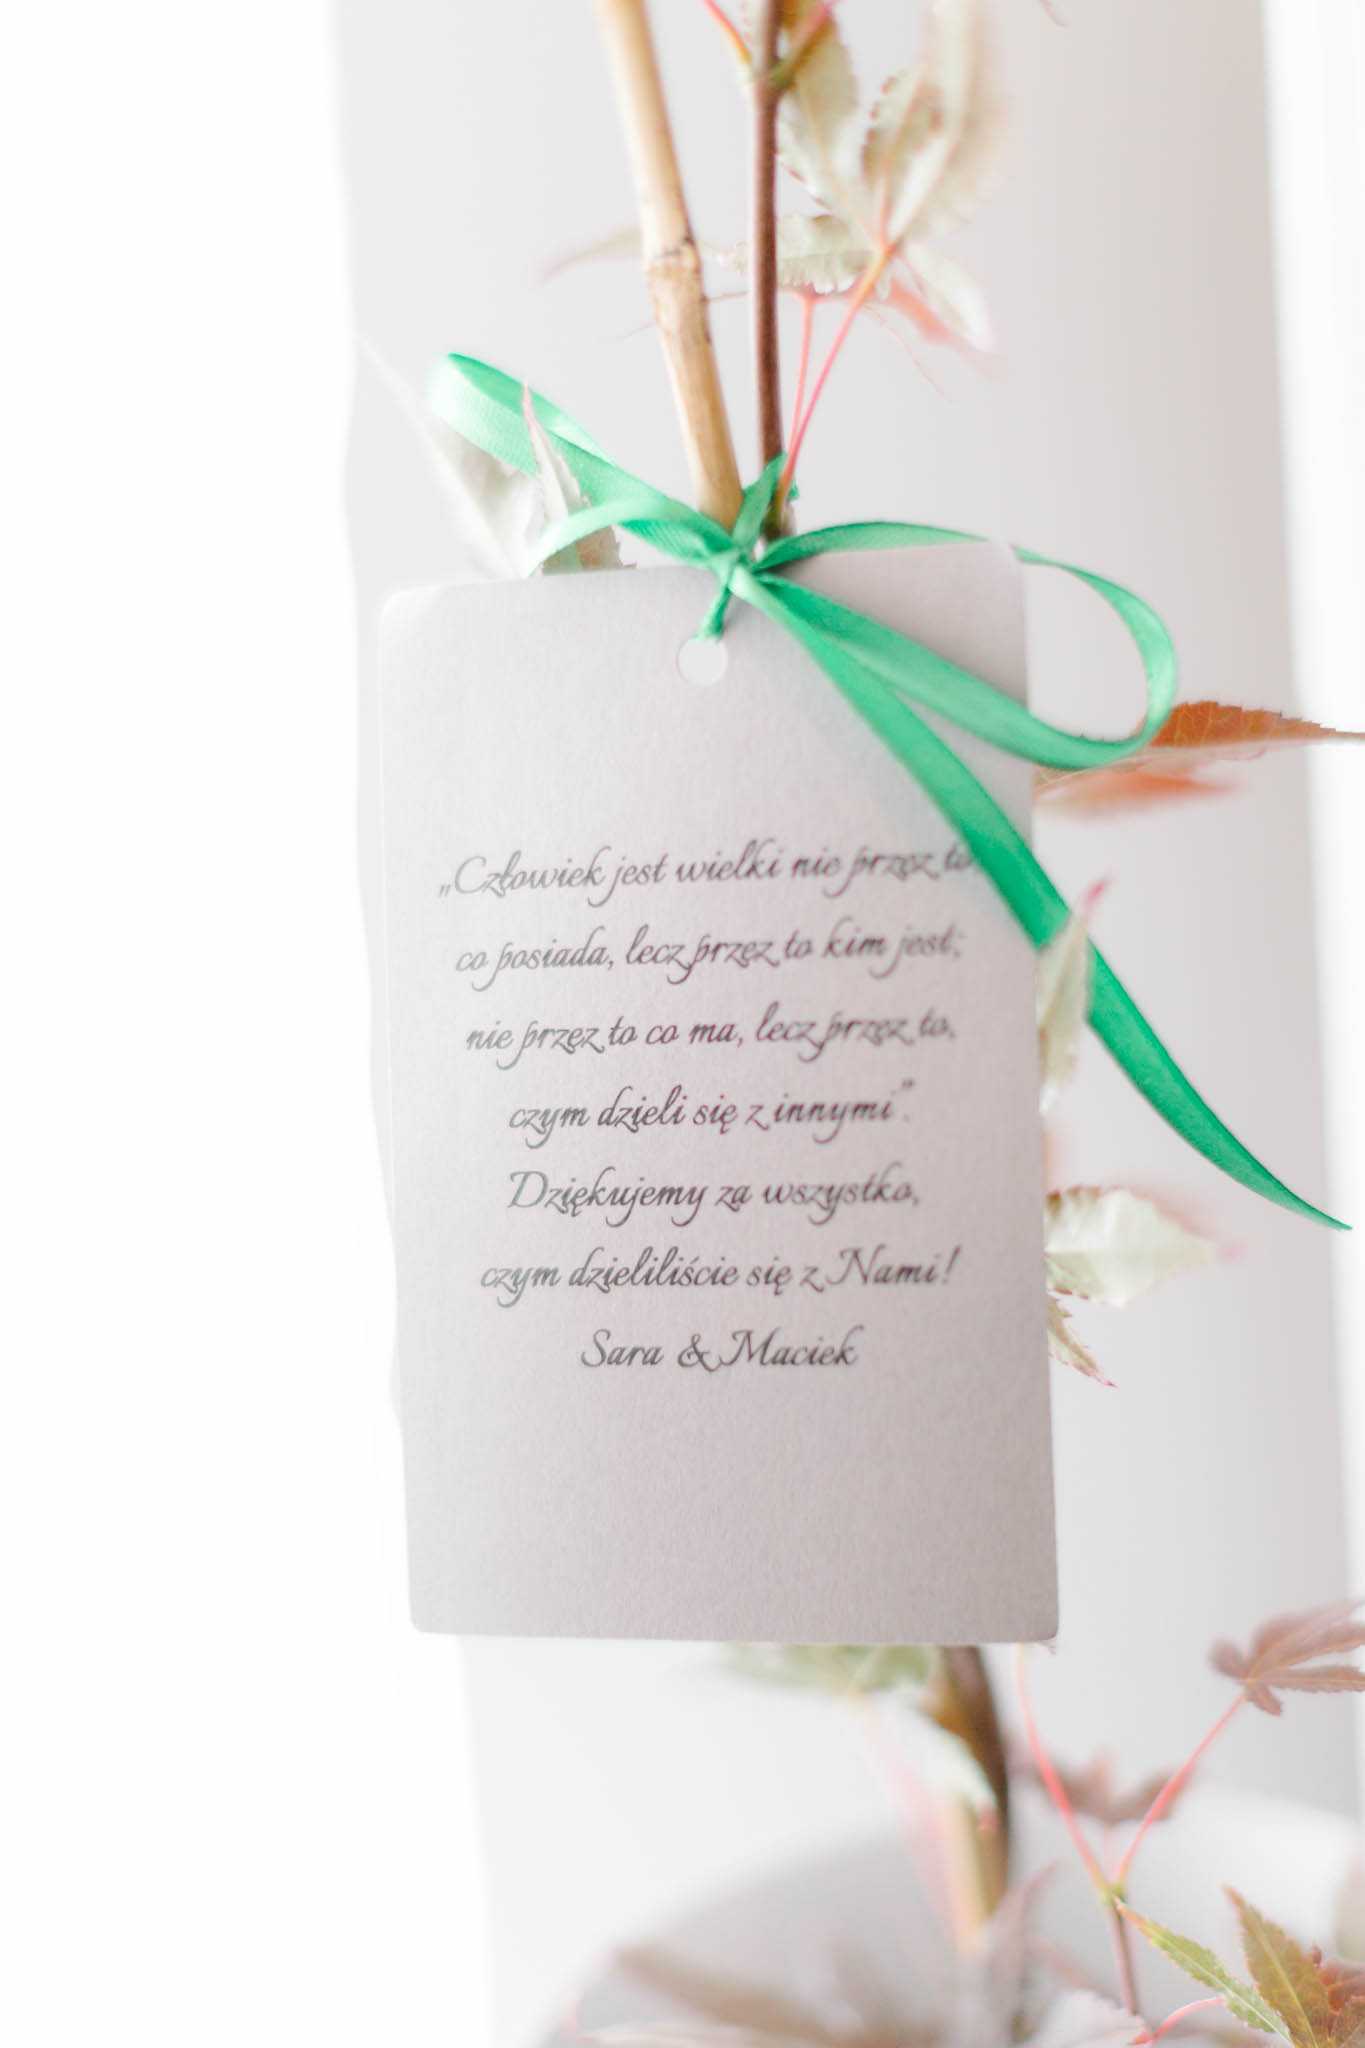 „Człowiek jest wielki nie przez to,
co posiada, lecz przez to kim jest;
nie przez to co ma, lecz przez to,
czym dzieli się z innymi”.
Dziękujemy za wszystko,
czym dzieliliście się z Nami!
Sara & Maciek